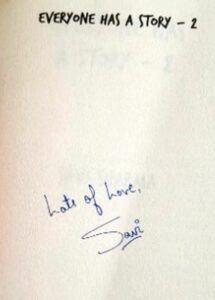 EVERYONE HAS A STORY - 2
Lots of Love,
Savi